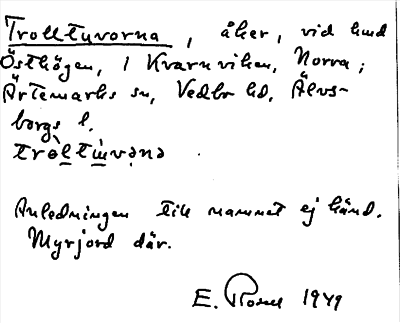 Trolltuvorna, åker, vid
Östhögen, i Kvarnviken, Norra;
Ärtemarks sn, Vedbo hd, Älvs-
borgs l.
Anledningen till namnet ej känd.
Myrjord där.
E. 1949